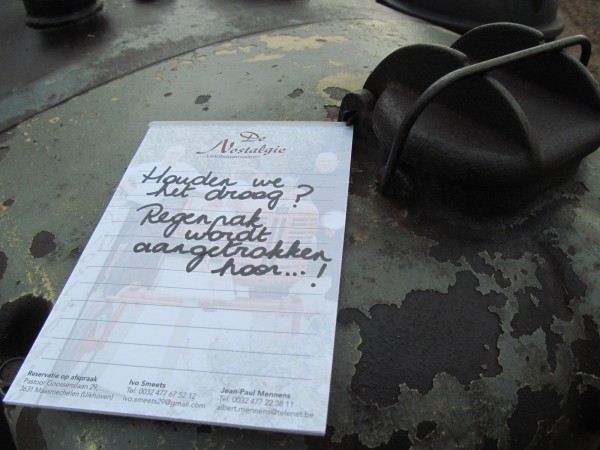 De
Nostalgie
Houden we
het droog?
Regenpak
wordt
aangetrokken
hoor...!
Reservatie op afspraak
Pastoor Goossenslaan 29,
3631 Maasmechelen (Uikhoven)
Ivo Smeets
Tel: 0032 477 67 52 12
ivo.smeets29@gmail.com
Jean-Paul Mennens
Tel: 0032 477 22 38 11
albert.mennens@telenet.be